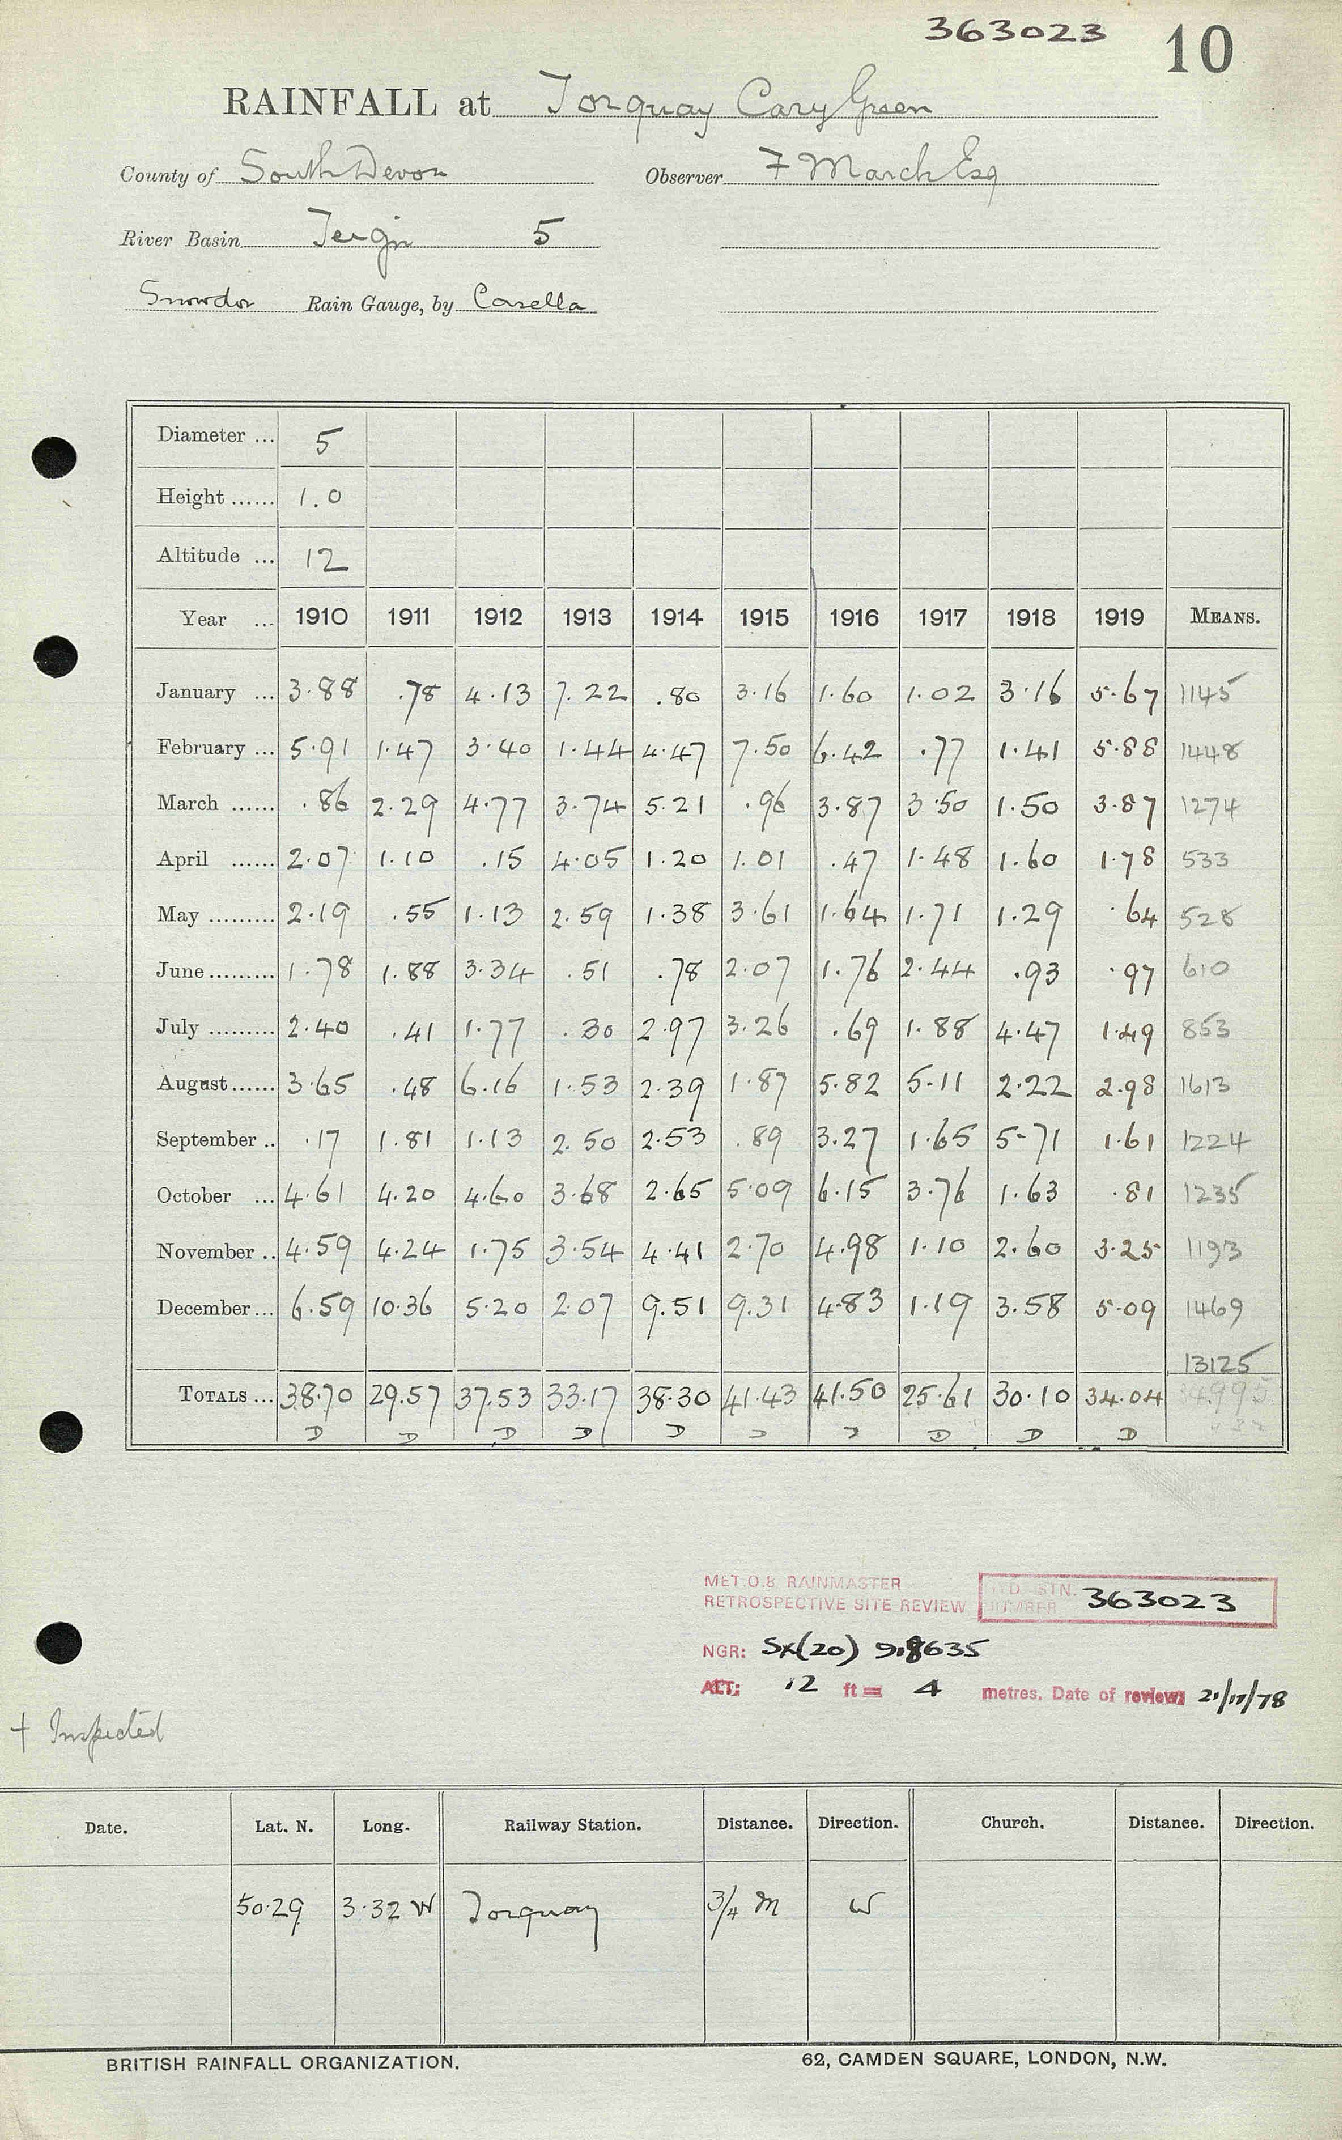 363023
10
RAINFALL at Torquay Cary Green
County of South Devon Observer F March Esq
River Basin Teign 5
Snowdon Rain Gauge, by Casella
Diameter ... 5
Height ...... 1.0
Altitude ... 12
Year ... 1910 1911 1912 1913 1914 1915 1916 1917 1918 1919 MEANS.
January ... 3.88 .78 4.13 7.22 .80 3.16 1.60 1.02 3.16 5.67 1145
February ... 5.91 1.47 3.40 1.44 4.47 7.50 6.42 .77 1.41 5.88 1448
March ...... .86 2.29 4.77 3.74 5.21 .96 3.87 3.50 1.50 3.87 1274
April ...... 2.07 1.10 .15 4.05 1.20 1.01 .47 1.48 1.60 1.78 533
May ......... 2.19 .55 1.13 2.59 1.38 3.61 1.64 1.71 1.29 .64 528
June ......... 1.78 1.88 3.34 .51 .78 2.07 1.76 2.44 .93 .97 610
July ......... 2.40 .41 1.77 .30 2.97 3.26 .69 1.88 4.47 1.49 853
August ...... 3.65 .48 6.16 1.53 2.39 1.87 5.82 5.11 2.22 2.98 1613
September .. .17 1.81 1.13 2.50 2.53 .89 3.27 1.65 5.71 1.61 1224
October ... 4.61 4.20 4.60 3.68 2.65 5.09 6.15 3.76 1.63 .81 1235
November .. 4.59 4.24 1.75 3.54 4.41 2.70 4.98 1.10 2.60 3.25 1193
December ... 6.59 10.36 5.20 2.07 9.51 9.31 4.83 1.19 3.58 5.09 1469
13125
TOTALS ... 38.70 29.57 37.53 33.17 38.30 41.43 41.50 25.61 30.10 34.04
D D D D D D D D D D
MET.O.8 RAINMASTER
RETROSPECTIVE SITE REVIEW STN. NUMBER 363023
NGR: SX(20) 918635
ALT: 12 ft = 4 metres. Date of review: 21/11/78
+ Inspected
Date. Lat. N. Long. Railway Station. Distance. Direction. Church. Distance. Direction.
50.29 3.32 W Torquay 3/4 M W
BRITISH RAINFALL ORGANIZATION. 62, CAMDEN SQUARE, LONDON, N.W.